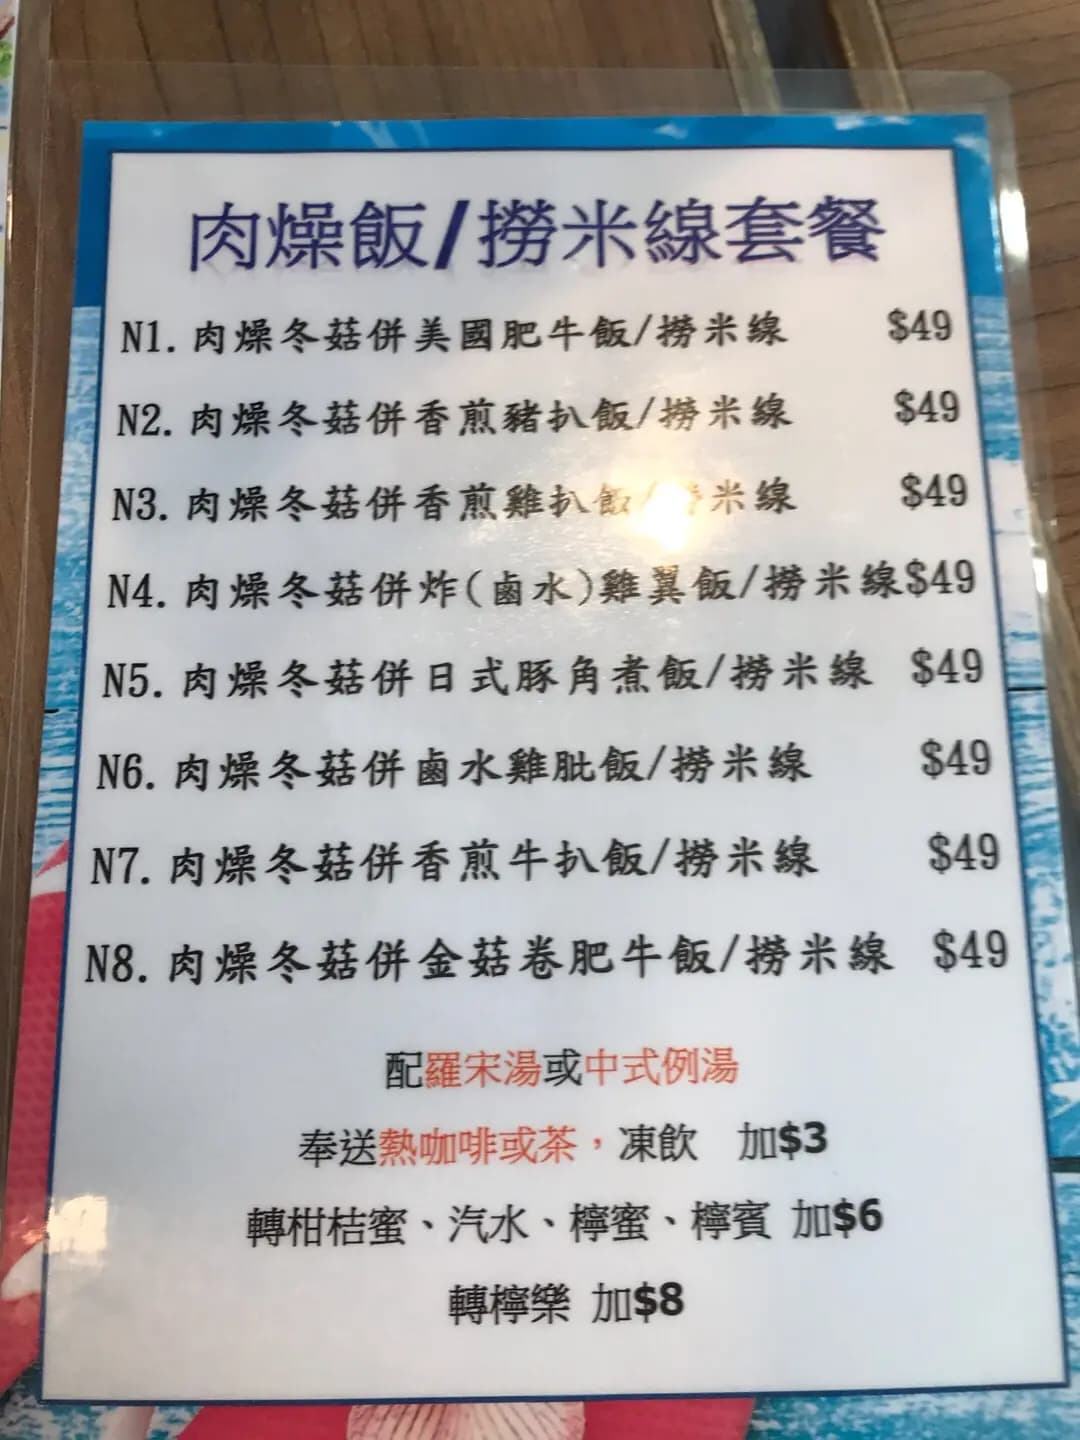 肉燥飯/撈米線套餐
N1. 肉燥冬菇併美國肥牛飯/撈米線 $49
N2. 肉燥冬菇併香煎豬扒飯/撈米線 $49
N3. 肉燥冬菇併香煎雞扒飯/撈米線 $49
N4. 肉燥冬菇併炸(鹵水)雞翼飯/撈米線$49
N5. 肉燥冬菇併日式豚角煮飯/撈米線 $49
N6. 肉燥冬菇併鹵水雞肶飯/撈米線 $49
N7. 肉燥冬菇併香煎牛扒飯/撈米線 $49
N8. 肉燥冬菇併金菇卷肥牛飯/撈米線 $49
配羅宋湯或中式例湯
奉送熱咖啡或茶，凍飲 加$3
轉柑桔蜜、汽水、檸蜜、檸賓 加$6
轉檸樂 加$8